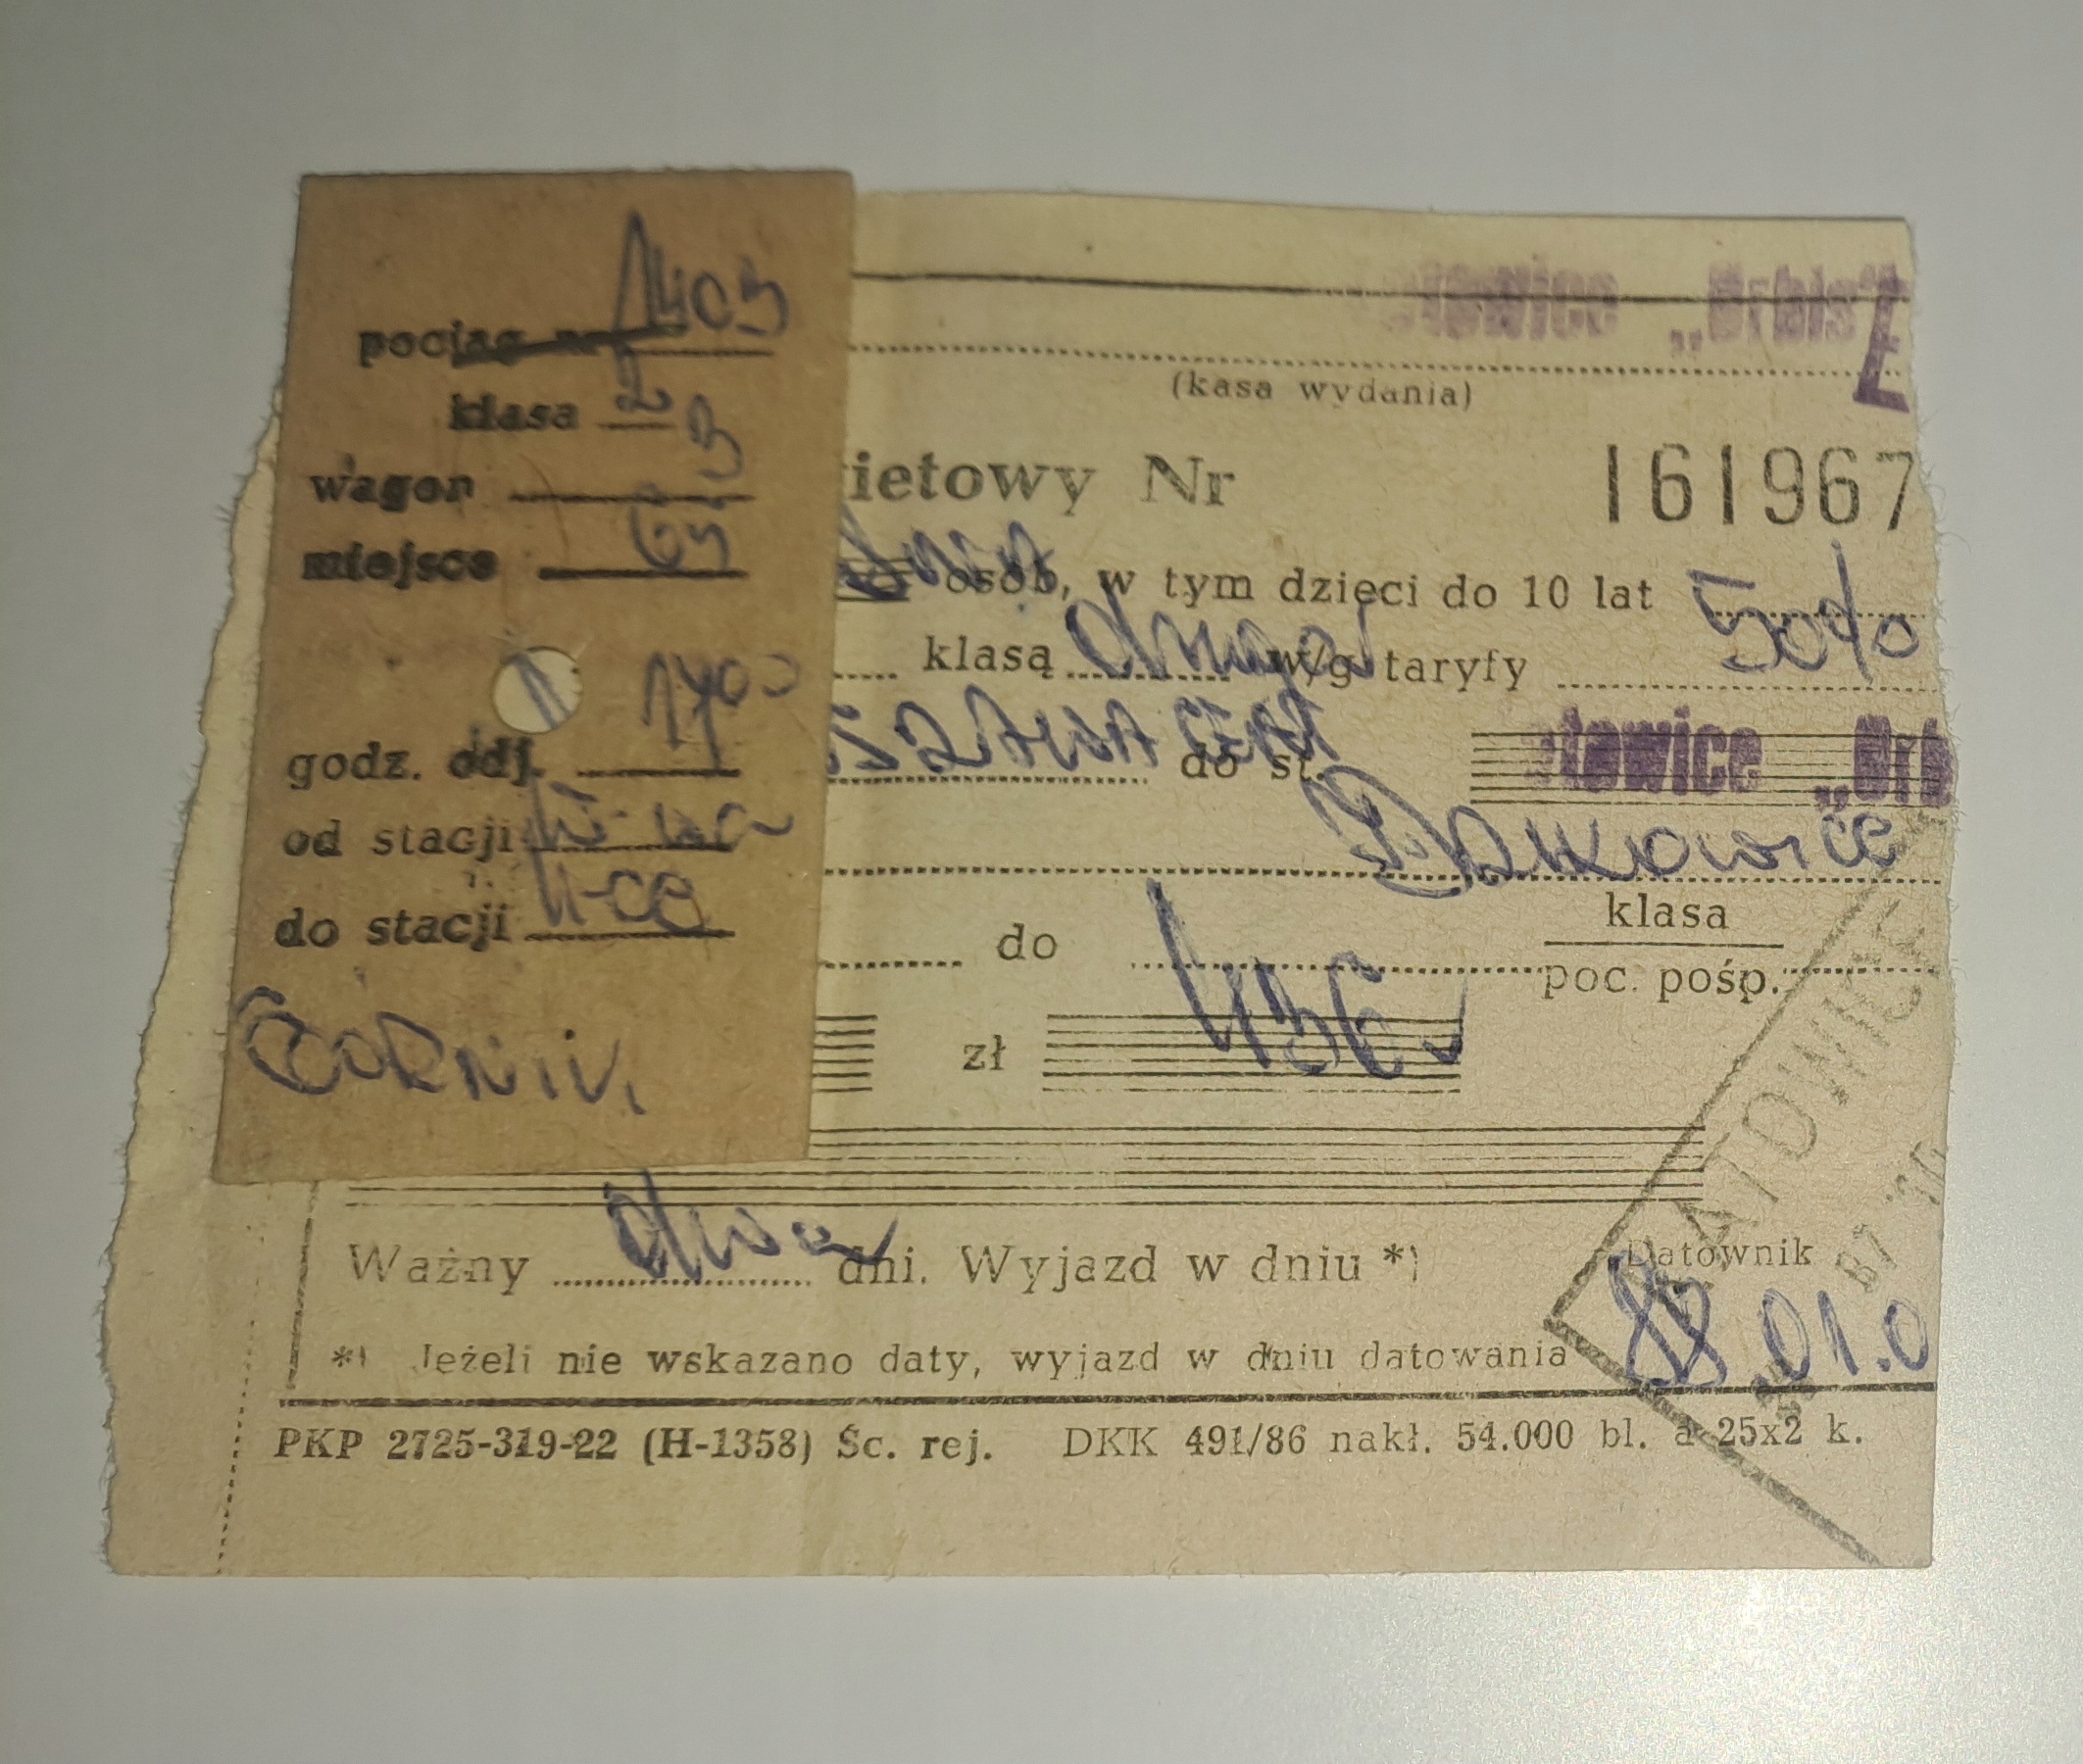 pociąg nr 1403
klasa 2
wagon 3
miejsce 65
godz. odj. 17 00
od stacji
do stacji
towice „Orbis”
(kasa wydania)
ietowy Nr 161967
osób, w tym dzieci do 10 lat
klasą drugą w/g taryfy 50%
SZAWA do st. towice „Orb
do klasa
poc. pośp.
zł
KATOWICE
Ważny dwa dni. Wyjazd w dniu *)
Datownik
*) Jeżeli nie wskazano daty, wyjazd w dniu datowania
.01.0
PKP 2725-319-22 (H-1358) Śc. rej. DKK 491/86 nakł. 54.000 bl. a 25x2 k.